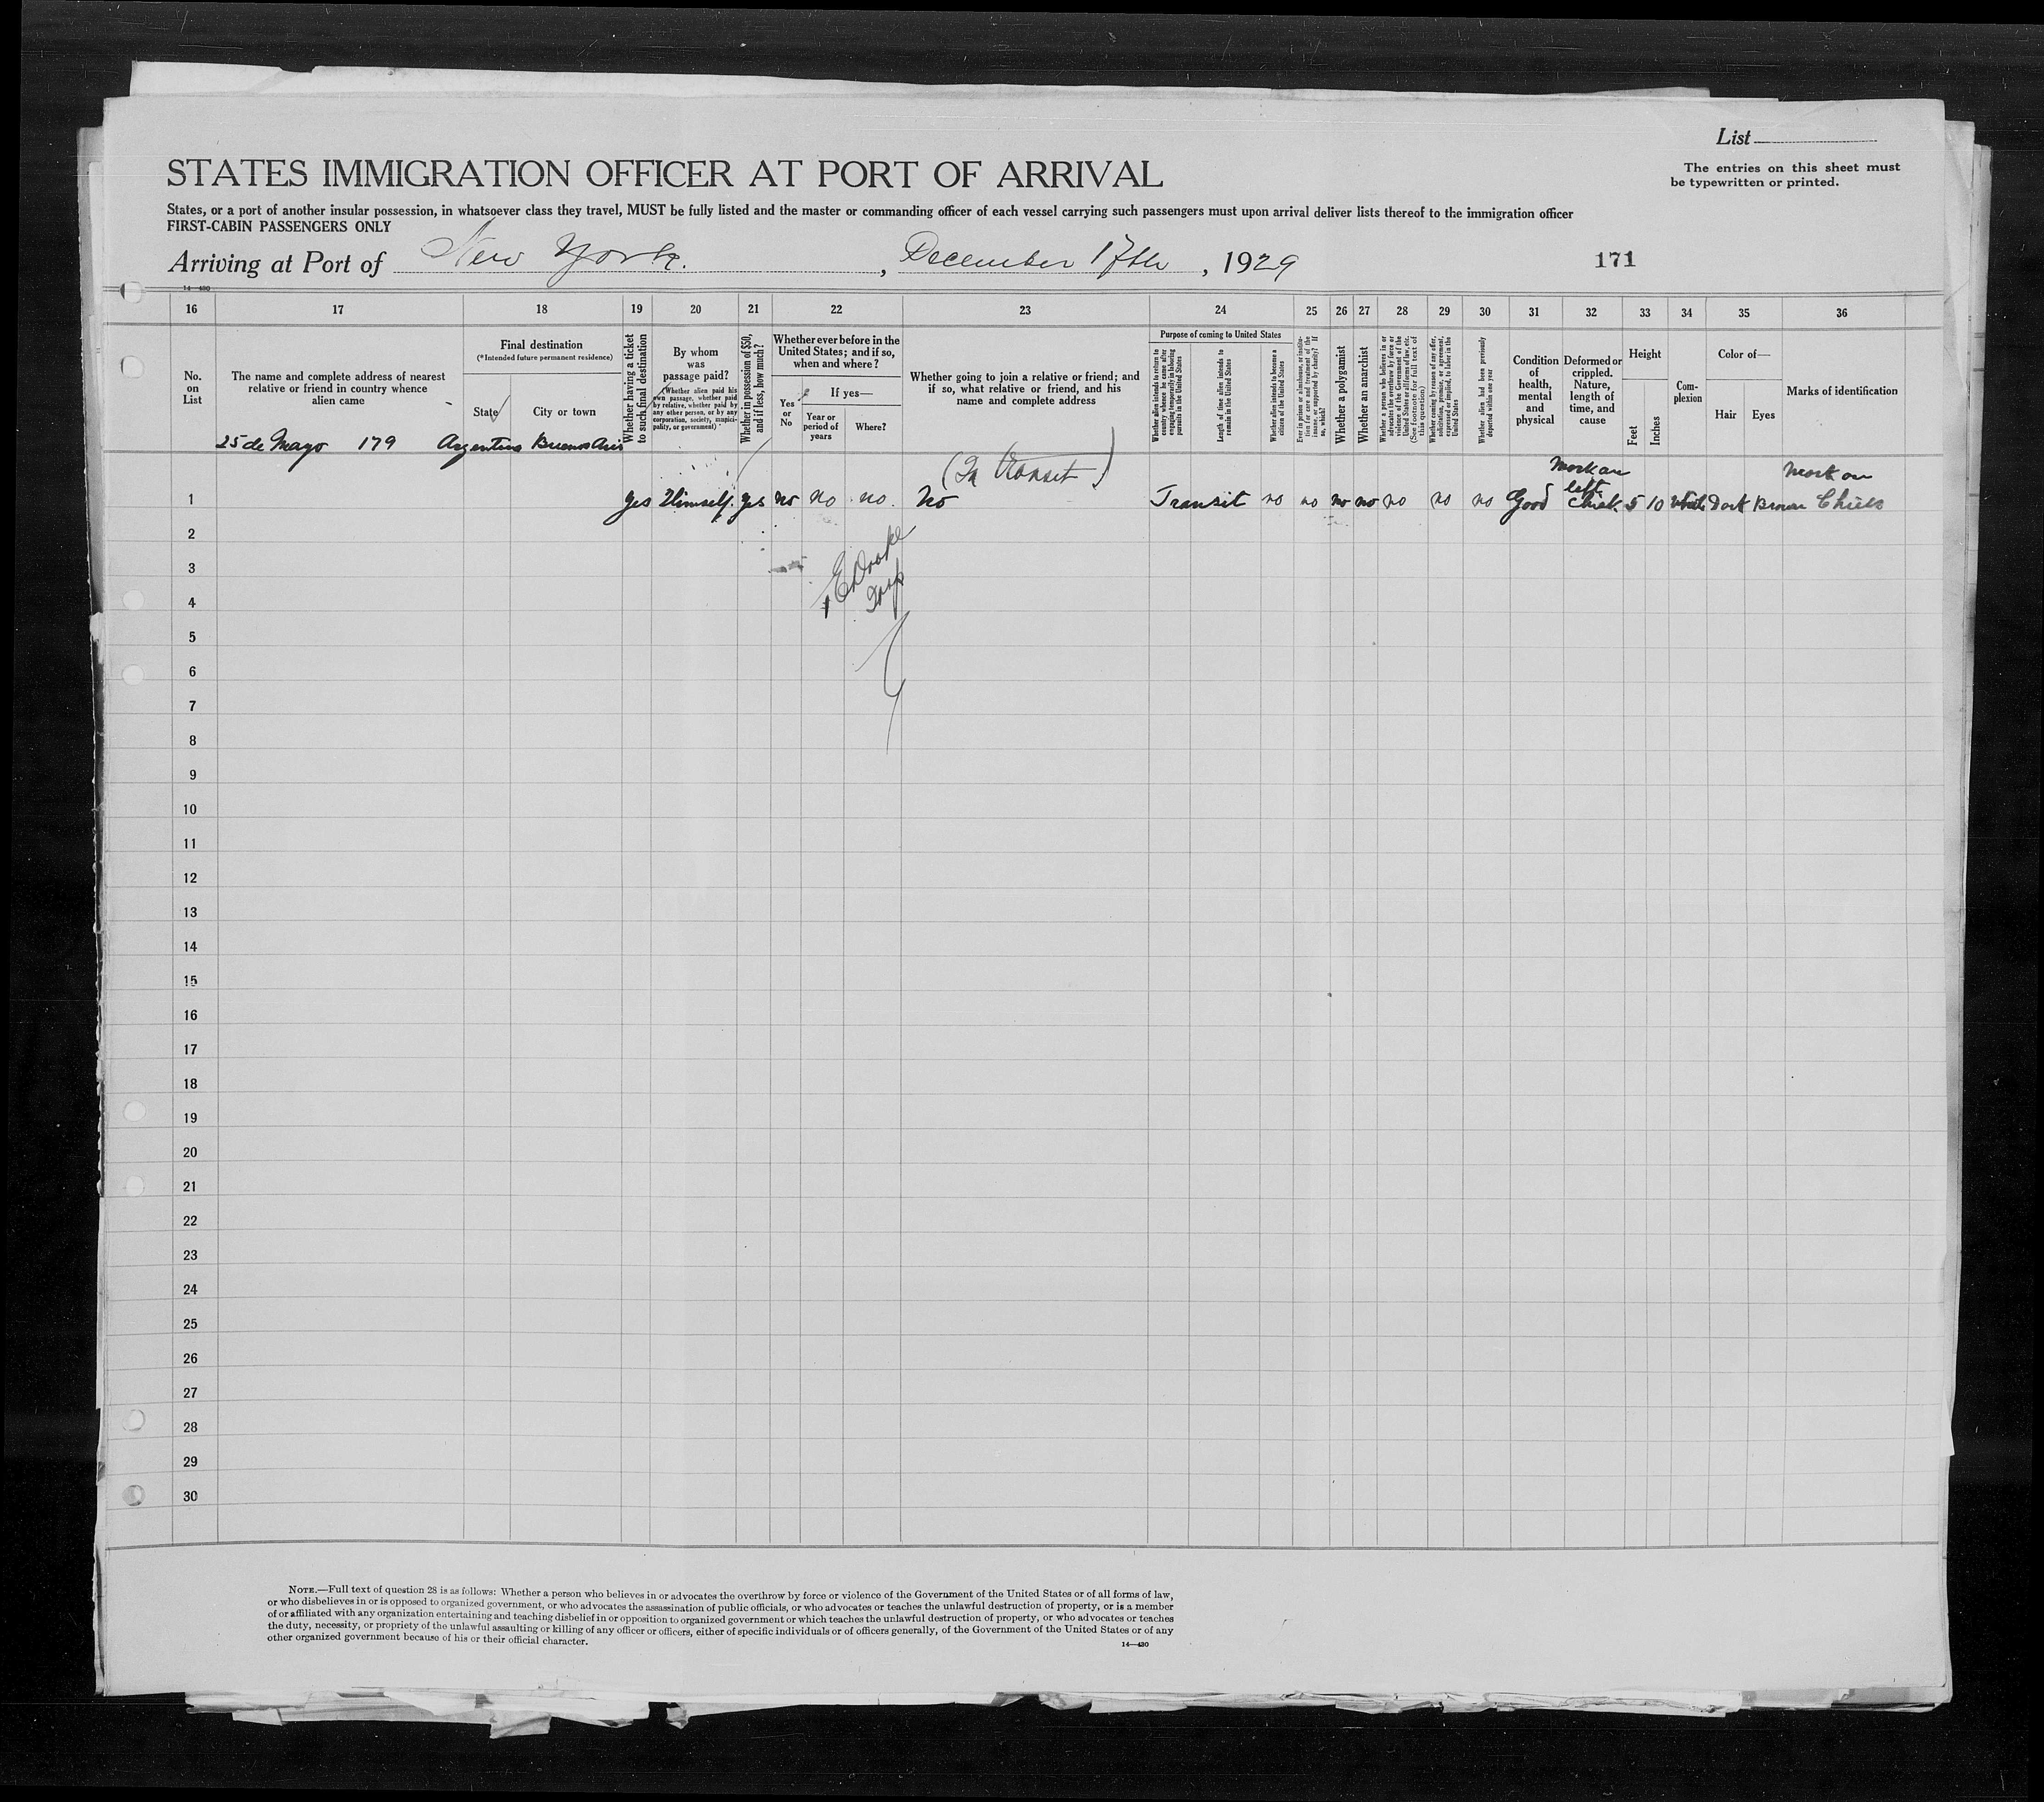 List
STATES IMMIGRATION OFFICER AT PORT OF ARRIVAL
The entries on this sheet must
be typewritten or printed.
States, or a port of another insular possession, in whatsoever class they travel, MUST be fully listed and the master or commanding officer of each vessel carrying such passengers must upon arrival deliver lists thereof to the immigration officer
FIRST-CABIN PASSENGERS ONLY
Arriving at Port of New York. , December 17th , 1929
171
14—430
16 17 18 19 20 21 22 23 24 25 26 27 28 29 30 31 32 33 34 35 36
No.
on
List
The name and complete address of nearest
relative or friend in country whence
alien came
Final destination
(*Intended future permanent residence)
State
City or town
Whether having a ticket
to such final destination
By whom
was
passage paid?
(Whether alien paid his
own passage, whether paid
by relative, whether paid by
any other person, or by any
corporation, society, munici-
pality, or government)
Whether in possession of $50,
and if less, how much?
Whether ever before in the
United States; and if so,
when and where?
Yes
or
No
If yes—
Year or
period of
years
Where?
Whether going to join a relative or friend; and
if so, what relative or friend, and his
name and complete address
Purpose of coming to United States
Whether alien intends to return to
country whence he came after
engaging temporarily in laboring
pursuits in the United States
Length of time alien intends to
remain in the United States
Whether alien intends to become a
citizen of the United States
Ever in prison or almshouse, or institu-
tion for care and treatment of the
insane, or supported by charity? If
so, which?
Whether a polygamist
Whether an anarchist
Whether a person who believes in or
advocates the overthrow by force or
violence of the Government of the
United States or all forms of law, etc.
(See footnote for full text of
this question)
Whether coming by reason of any offer,
solicitation, promise, or agreement,
expressed or implied, to labor in the
United States
Whether alien had been previously
deported within one year
Condition
of
health,
mental
and
physical
Deformed or
crippled.
Nature,
length of
time, and
cause
Height
Feet
Inches
Com-
plexion
Color of—
Hair
Eyes
Marks of identification
25 de Mayo 179 Argentina Buenos Aires
(In transit)
Mark on
left
Mark on
1 yes Himself. yes no no no. No Transit no no no no no no no Good Cheek 5 10 White Dark Brown Cheek
2
3
E Drake
Insp
4
5
6
7
8
9
10
11
12
13
14
15
16
17
18
19
20
21
22
23
24
25
26
27
28
29
30
NOTE.—Full text of question 28 is as follows: Whether a person who believes in or advocates the overthrow by force or violence of the Government of the United States or of all forms of law,
or who disbelieves in or is opposed to organized government, or who advocates the assassination of public officials, or who advocates or teaches the unlawful destruction of property, or is a member
of or affiliated with any organization entertaining and teaching disbelief in or opposition to organized government or which teaches the unlawful destruction of property, or who advocates or teaches
the duty, necessity, or propriety of the unlawful assaulting or killing of any officer or officers, either of specific individuals or of officers generally, of the Government of the United States or of any
other organized government because of his or their official character.
14—430